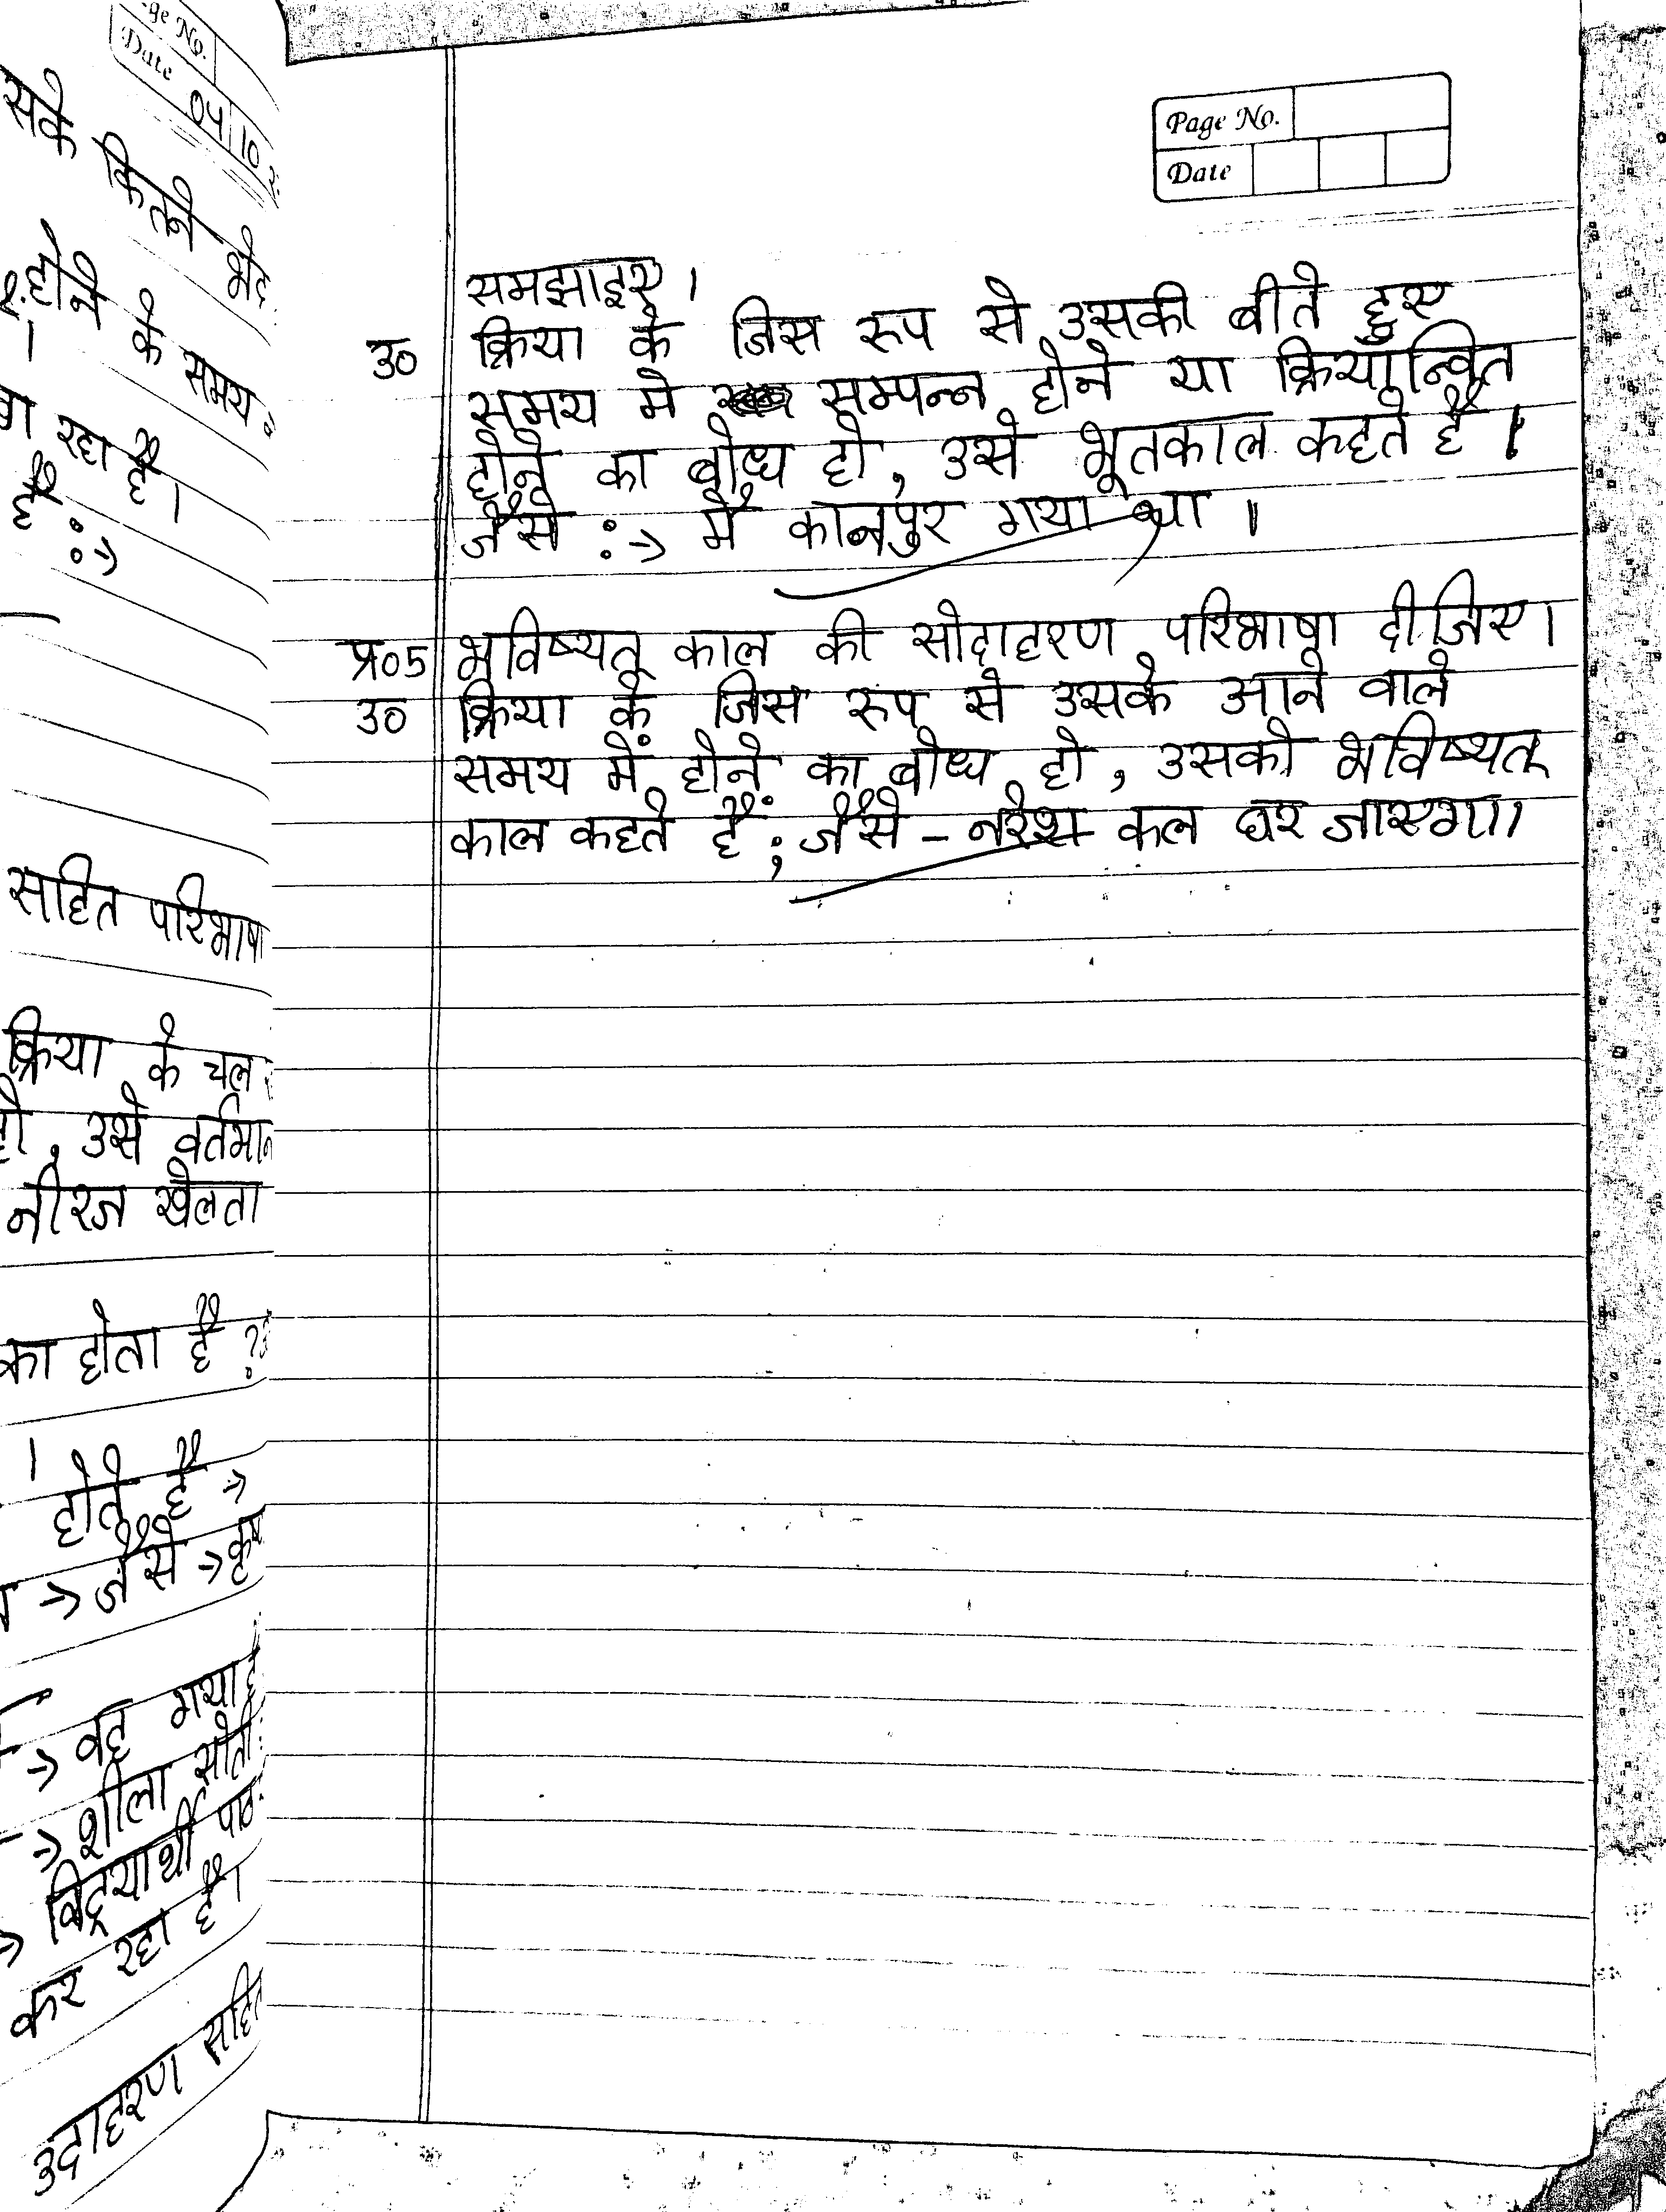 ge No.
Date 04 10
सके कितने भेद
होने के समय
रहा है।
है :->
सहित परिभाषा
क्रिया के चल
, उसे वर्तमान
नीरज खेलता
का होता है ?
।
होते है ->
-> जैसे -> कृष
-> वह गया है
-> शीला सोती
-> विद्यार्थी पाठ
कर रहा है।
उदाहरण सहित
Page No.
Date
समझाइए।
उ० क्रिया के जिस रूप से उसकी बीते हुए
समय मे सम्पन्न होने या क्रियान्वित
होने का बोध हो, उसे भूतकाल कहते है।
जैसे :-> मै कानपुर गया था।
प्र०5 भविष्यत् काल की सोदाहरण परिभाषा दीजिए।
उ० क्रिया के जिस रूप से उसके आने वाले
समय में होने का बोध हो, उसको भविष्यत्
काल कहते हैं; जैसे - नरेश कल घर जाएगा।